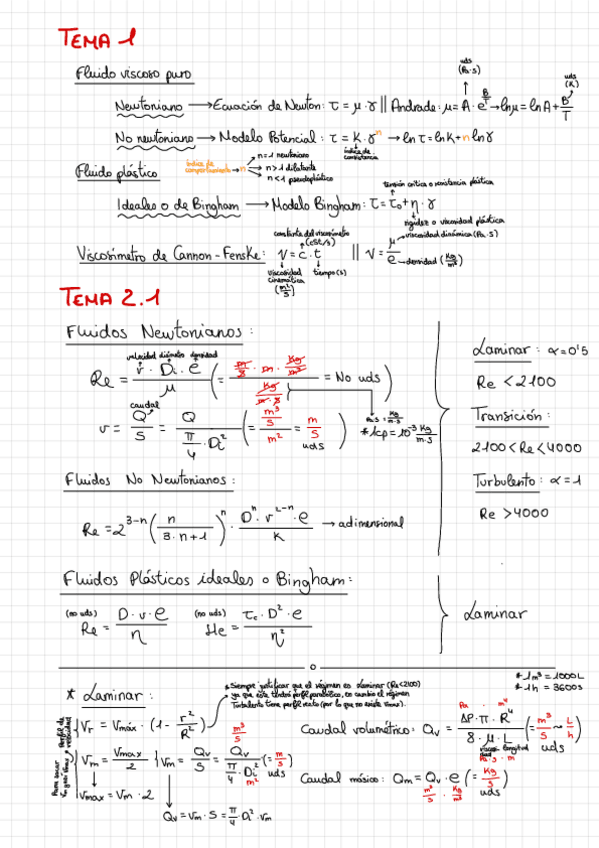 TEMA 1
Fluido viscoso puro
uds (Pa·s)
uds (K)
Newtoniano → Ecuación de Newton: τ = μ · γ || Andrade: μ = A · e^(B/T) → lnμ = lnA + B/T
No newtoniano → Modelo Potencial: τ = K · γ^n → lnτ = lnK + n lnγ
índice de consistencia
índice de comportamiento → n
n = 1 newtoniano
n > 1 dilatante
n < 1 pseudoplástico
Fluido plástico
tensión crítica o resistencia plástica
Ideales o de Bingham → Modelo Bingham: τ = τ₀ + η · γ
rigidez o viscosidad plástica
constante del viscosímetro (cSt/s)
viscosidad dinámica (Pa·s)
Viscosímetro de Cannon-Fenske: ν = c · t || ν = μ/ρ
densidad (Kg/m³)
viscosidad cinemática (m²/s)
tiempo (s)
TEMA 2.1
Fluidos Newtonianos:
velocidad diámetro densidad
Re = v · Di · ρ / μ (= m/s · m · Kg/m³ / Kg/m·s = No uds)
Pa·s = Kg/m·s
* 1cp = 10⁻³ Kg/m·s
caudal
v = Q/S = Q / (π/4 · Di²) (= m³/s / m² = m/s) uds
Laminar: α = 0'5
Re < 2100
Transición:
2100 < Re < 4000
Turbulento: α = 1
Re > 4000
Fluidos No Newtonianos:
Re = 2^(3-n) (n / 3·n+1)^n · D^n · v^(2-n) · ρ / K → adimensional
Fluidos Plásticos ideales o Bingham:
(no uds) Re = D · v · ρ / η (no uds) He = τ₀ · D² · ρ / η²
Laminar
* 1m³ = 1000L
* 1h = 3600s
* Laminar:
* Siempre justificar que el régimen es Laminar (Re<2100)
ya que éste tendrá perfil parabólico, en cambio el régimen
Turbulento tiene perfil recto (por lo que no existe Vmax).
Perfil de velocidad
Vr = Vmáx · (1 - r²/R²)
Vm = Vmax/2 || Vm = Qv/S = Qv / (π/4 · Di²) (= m/s) uds
m³/s
m²
Vmax = Vm · 2
Qv = Vm · S = π/4 · Di² · Vm
Caudal volumétrico: Qv = ΔP · π · R⁴ / 8 · μ · L (= m³/s ~ L/h) uds
Pa · m⁴
viscosidad longitud
Pa·s · m
Caudal másico: Qm = Qv · ρ (= Kg/s) uds
m³/s · Kg/m³